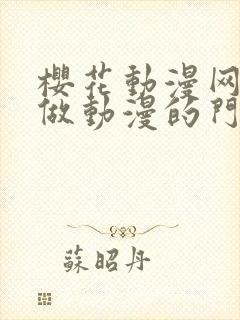 櫻花動漫网
做動漫的門
蘇昭丹